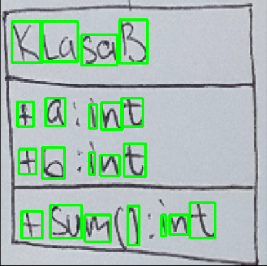 KlasaB
+ a : int
+ b : int
+ sum() : int